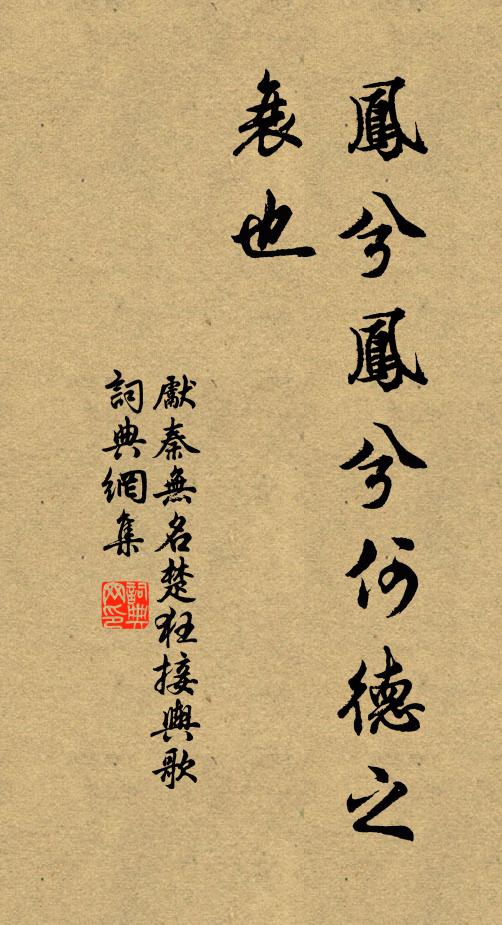 鳳兮鳳兮何德之
衰也
獻秦無名楚狂接輿歌
詞典網集
詞典网印